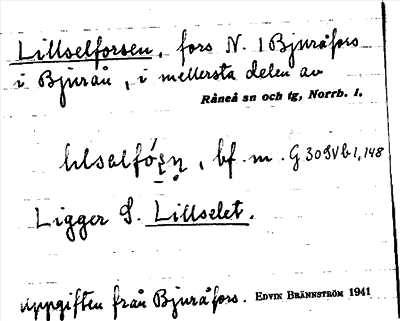 Lillselforsen, fors N. i Bjuråfors
i Bjurån, i mellersta delen av
Råneå sn och tg, Norrb. l.
bf. m. G 309 V b 1, 148
Ligger S. Lillselet.
uppgiften från Bjuråfors. EDVIN BRÄNNSTRÖM 1941